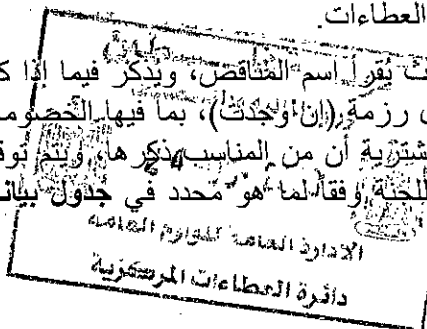 العطاءات.
يُقرأ اسم المناقص، ويُذكر فيما إذا
رزمة (إن وجدت)، بما فيها الخصومات
أن من المناسب ذكرها، ويتم
وفقاً لما هو محدد في جدول
الإدارة العامة للوازم العامة
دائرة العطاءات المركزية